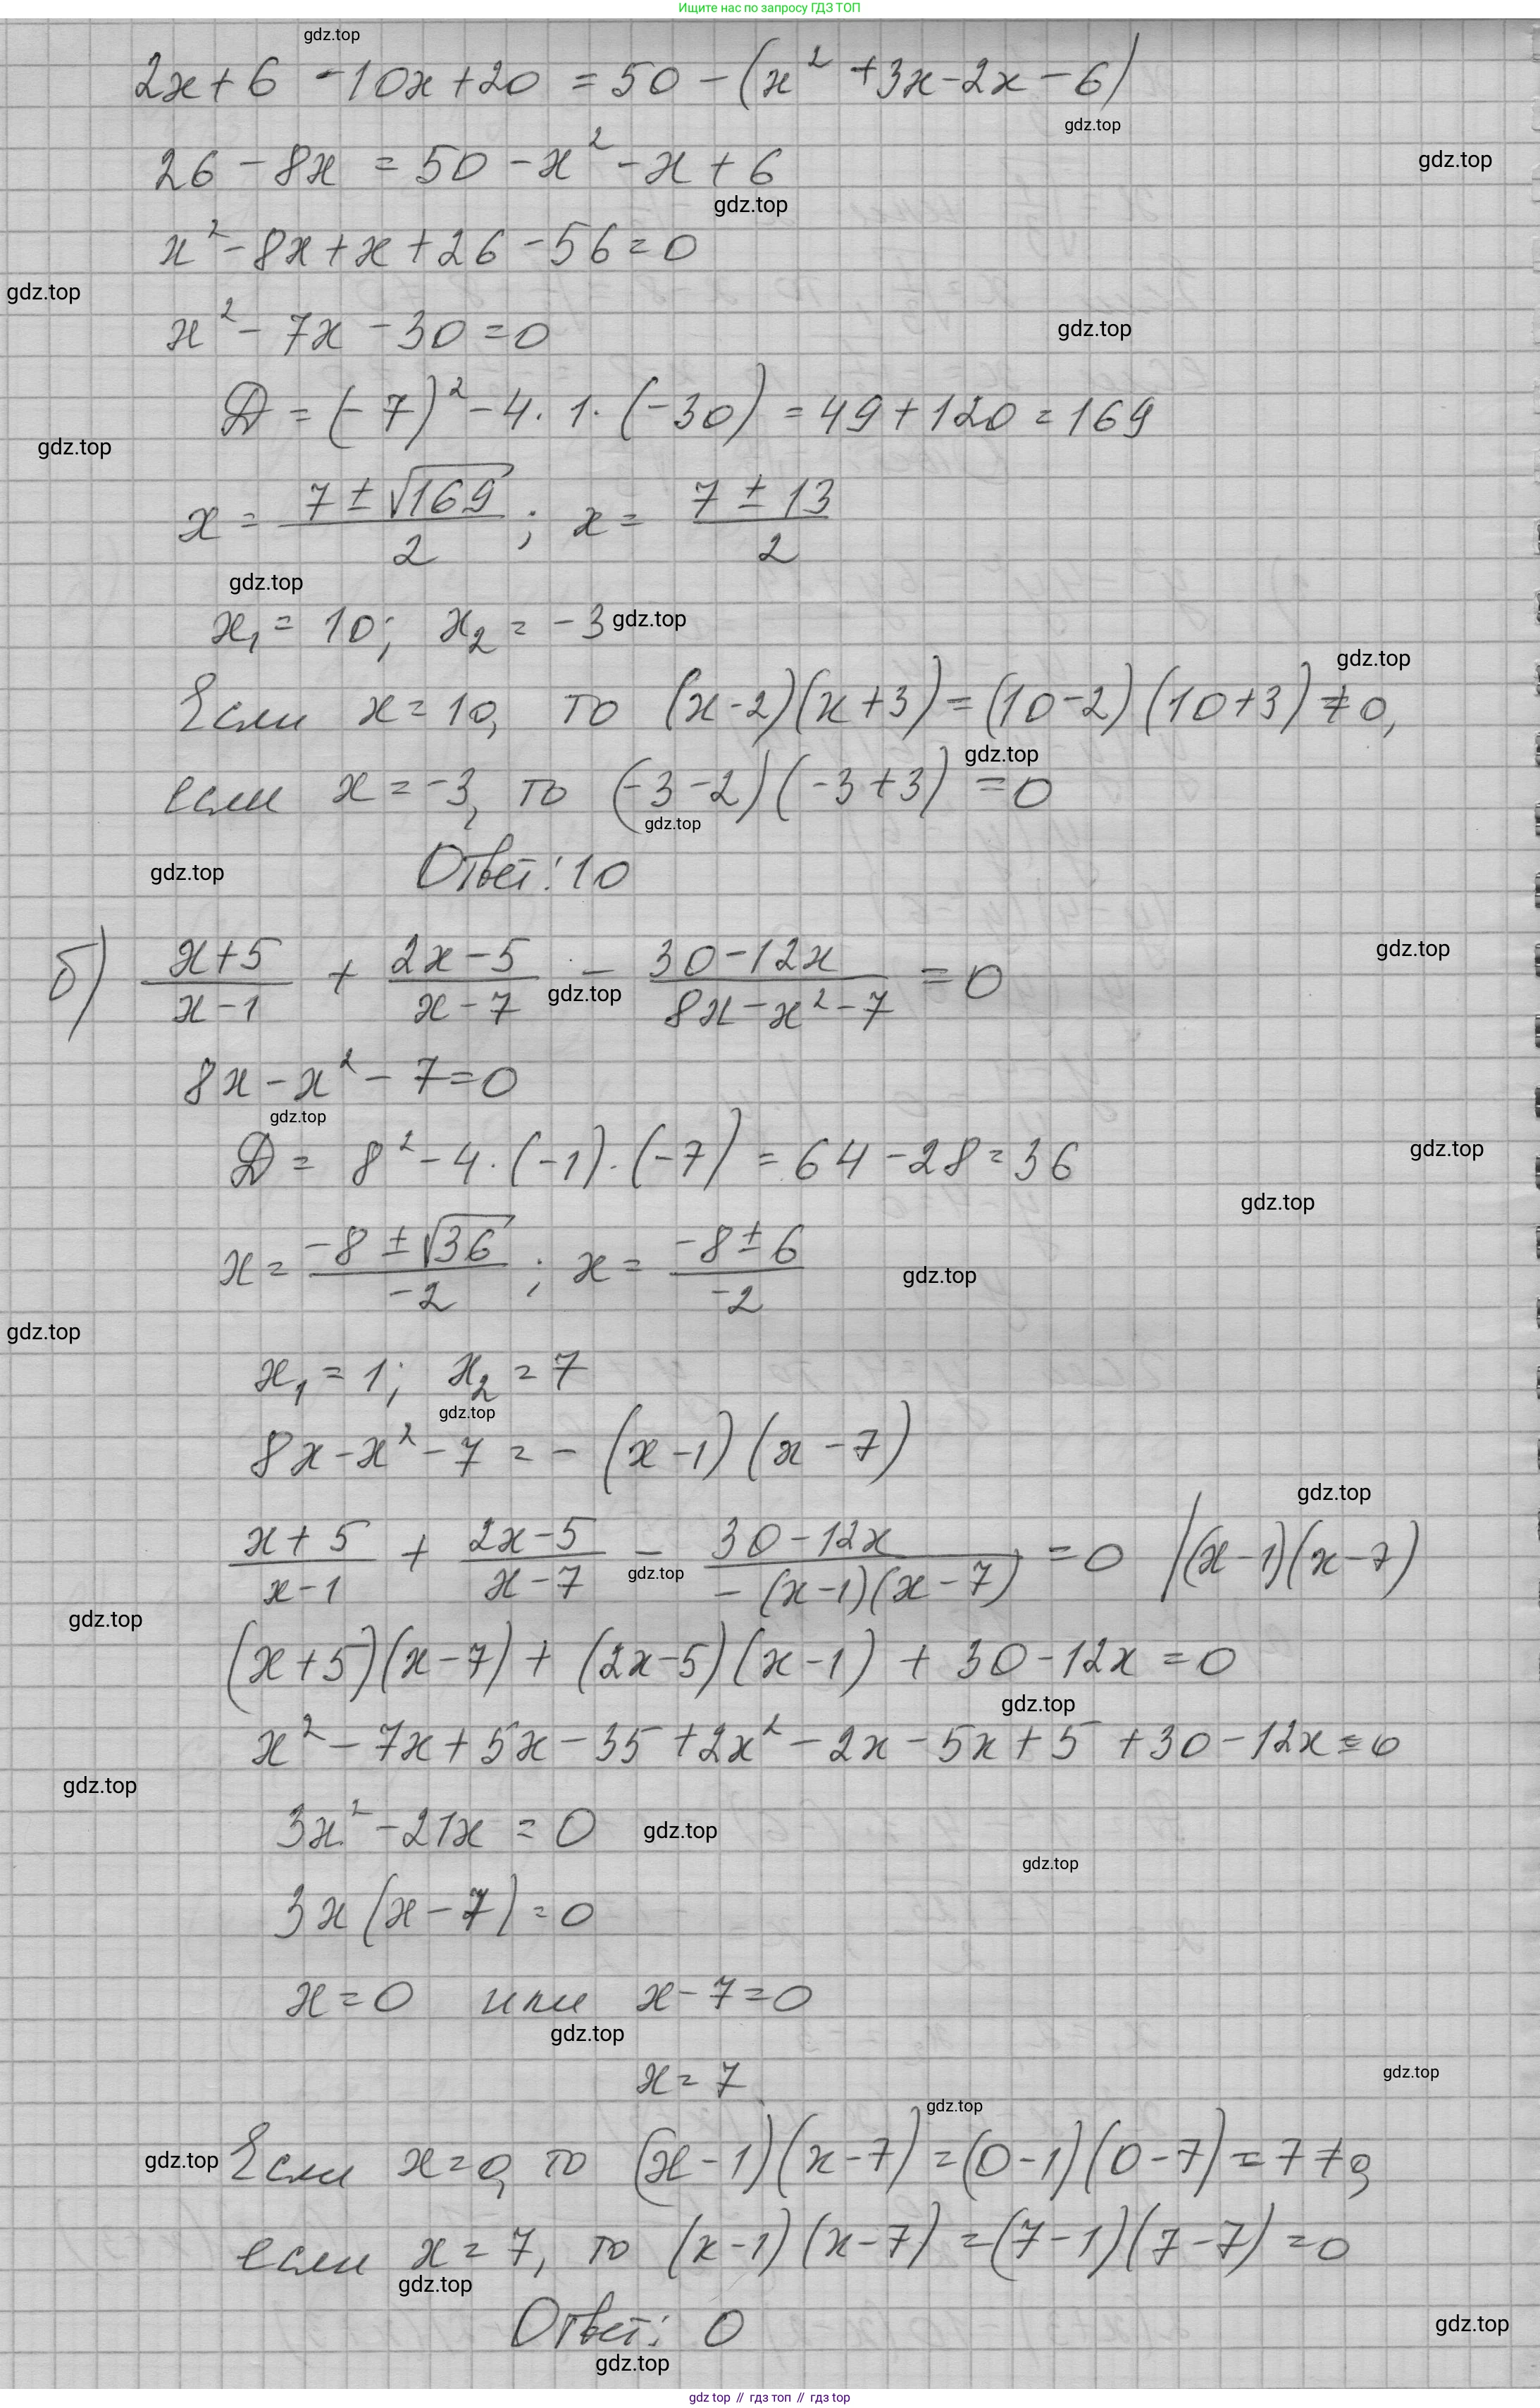 Ищите нас по запросу ГДЗ ТОП
gdz.top
2x + 6 - 10x + 20 = 50 - (x² + 3x - 2x - 6)
gdz.top
26 - 8x = 50 - x² - x + 6
gdz.top
gdz.top
x² - 8x + x + 26 - 56 = 0
gdz.top
x² - 7x - 30 = 0
gdz.top
Д = (-7)² - 4 · 1 · (-30) = 49 + 120 = 169
gdz.top
x = (7 ± √169)/2 ; x = (7 ± 13)/2
gdz.top
x₁ = 10; x₂ = -3
gdz.top
gdz.top
Если x = 10, то (x-2)(x+3) = (10-2)(10+3) ≠ 0,
gdz.top
если x = -3, то (-3-2)(-3+3) = 0
gdz.top
gdz.top
Ответ: 10
б) (x+5)/(x-1) + (2x-5)/(x-7) - (30-12x)/(8x-x²-7) = 0
gdz.top
gdz.top
8x - x² - 7 = 0
gdz.top
Д = 8² - 4 · (-1) · (-7) = 64 - 28 = 36
gdz.top
gdz.top
x = (-8 ± √36)/-2 ; x = (-8 ± 6)/-2
gdz.top
gdz.top
x₁ = 1; x₂ = 7
gdz.top
8x - x² - 7 = - (x-1)(x-7)
gdz.top
(x+5)/(x-1) + (2x-5)/(x-7) - (30-12x)/(-(x-1)(x-7)) = 0 |(x-1)(x-7)
gdz.top
gdz.top
(x+5)(x-7) + (2x-5)(x-1) + 30 - 12x = 0
gdz.top
x² - 7x + 5x - 35 + 2x² - 2x - 5x + 5 + 30 - 12x = 0
gdz.top
3x² - 21x = 0
gdz.top
gdz.top
3x(x-7) = 0
x = 0 или x - 7 = 0
gdz.top
x = 7
gdz.top
gdz.top
gdz.top
Если x = 0, то (x-1)(x-7) = (0-1)(0-7) = 7 ≠ 0,
если x = 7, то (x-1)(x-7) = (7-1)(7-7) = 0
gdz.top
Ответ: 0
gdz.top
gdz.top
gdz top // гдз топ // гдз top